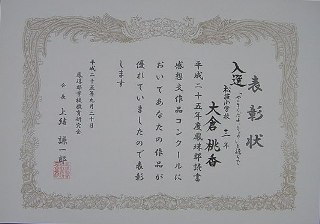 表彰状
入選
松波小学校 三年
大倉 桃香
平成二十五年度鳳珠郡読書
感想文作品コンクールに
おいてあなたの作品が
優れていましたので表彰
します
平成二十五年九月二十日
鳳珠郡学校教育研究会
会長 上結 謙一郎